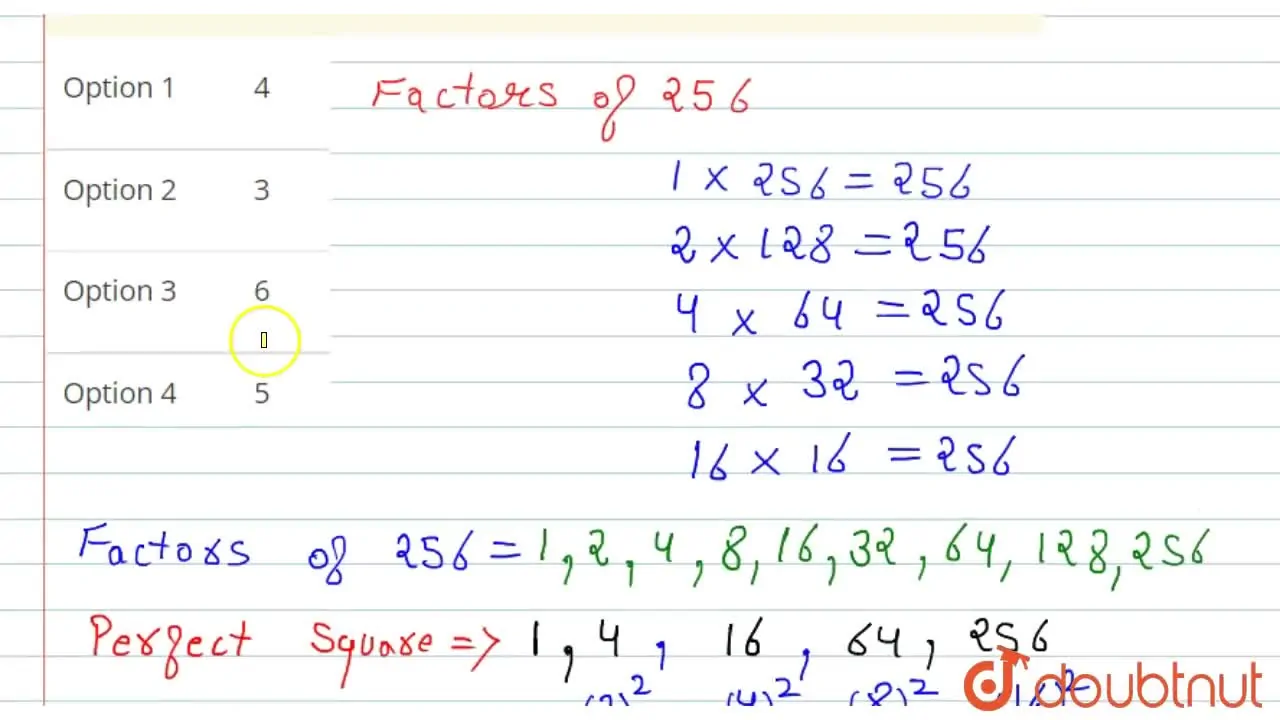 Option 1 4
Option 2 3
Option 3 6
Option 4 5
Factors of 256
1 × 256 = 256
2 × 128 = 256
4 × 64 = 256
8 × 32 = 256
16 × 16 = 256
Factors of 256 = 1, 2, 4, 8, 16, 32, 64, 128, 256
Perfect Square => 1, 4, 16, 64, 256
(2)² (4)² (8)² (16)²
doubtnut